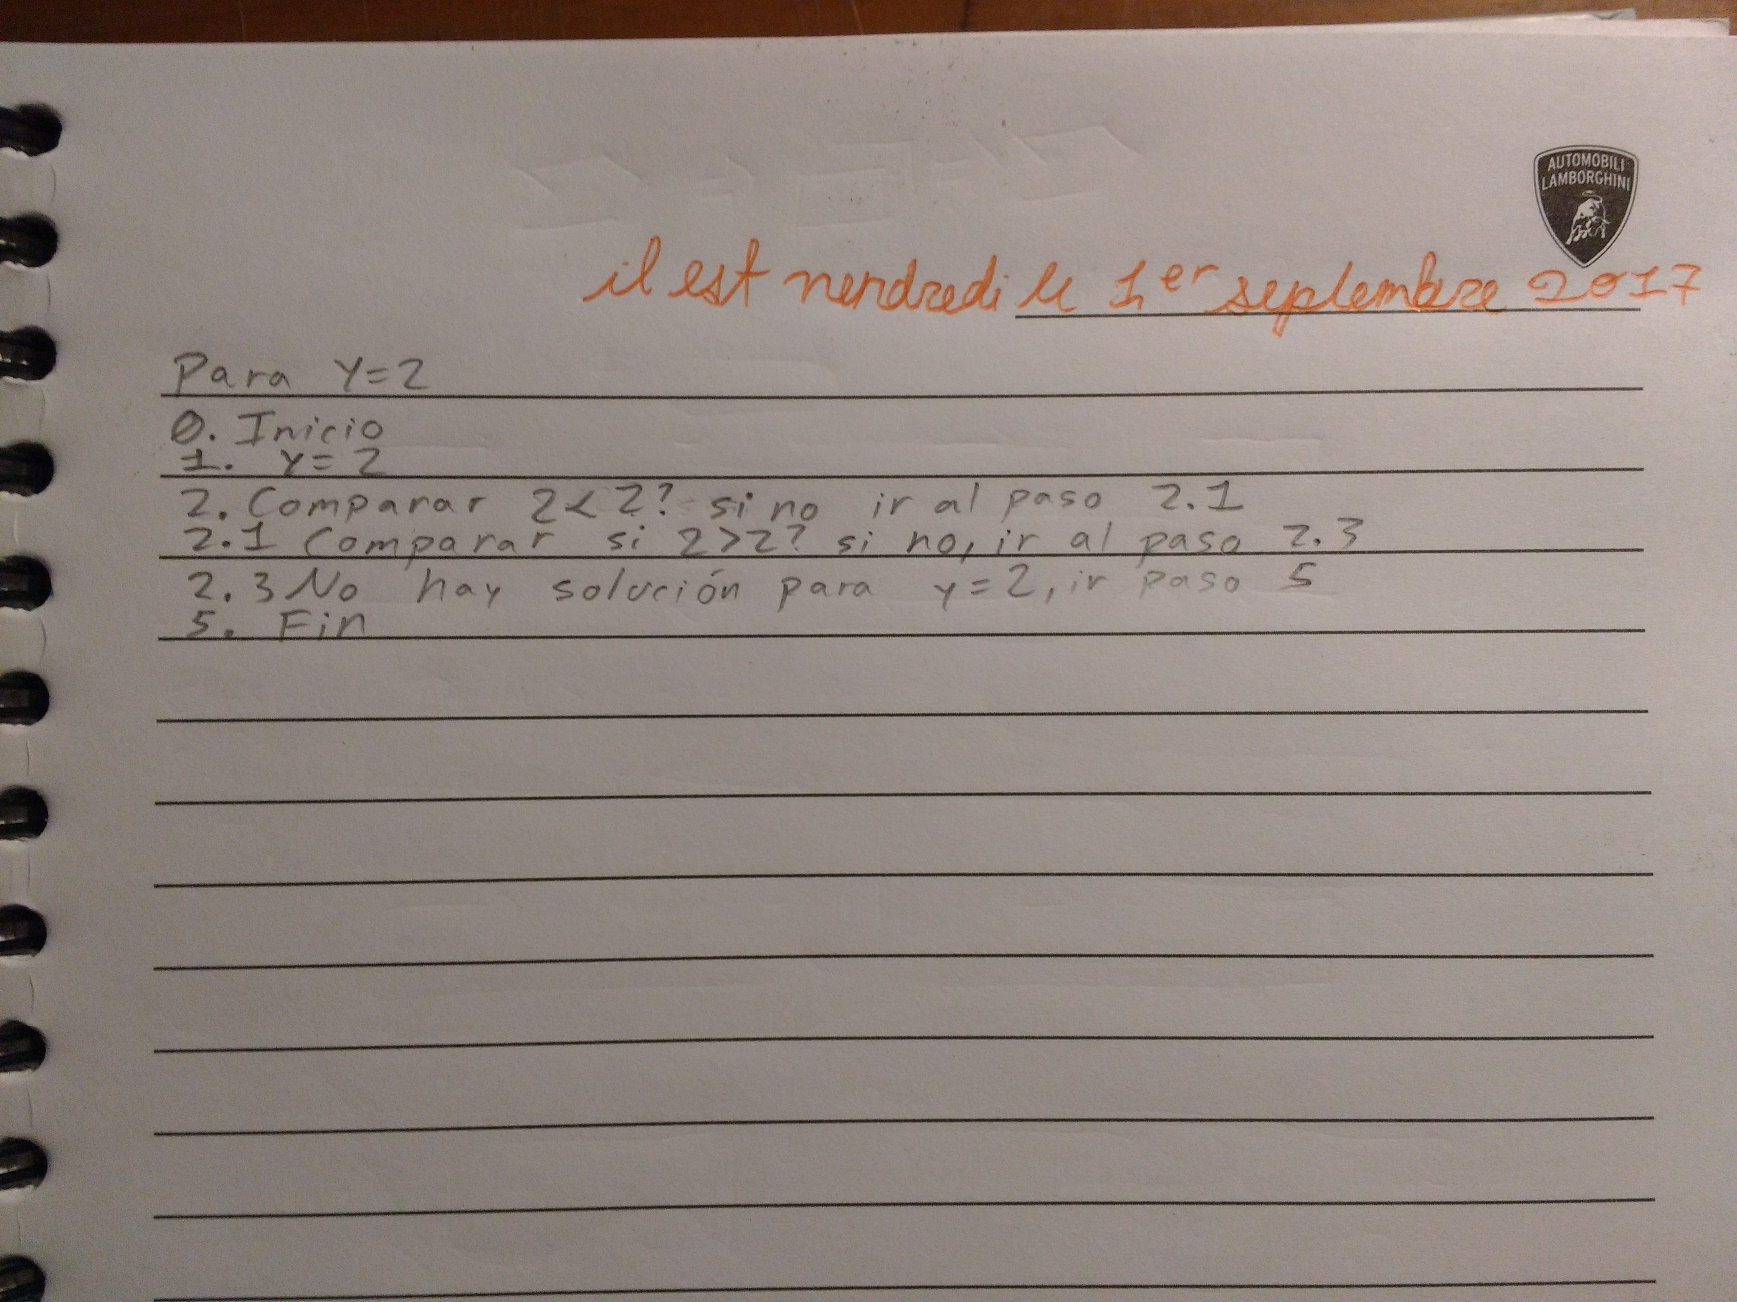 AUTOMOBILI
LAMBORGHINI
il est vendredi le 1er septembre 2017
Para Y=2
0. Inicio
1. Y=2
2. Comparar 2<2? si no ir al paso 2.1
2.1 Comparar si 2>2? si no, ir al paso 2.3
2.3 No hay solución para y=2, ir paso 5
5. Fin